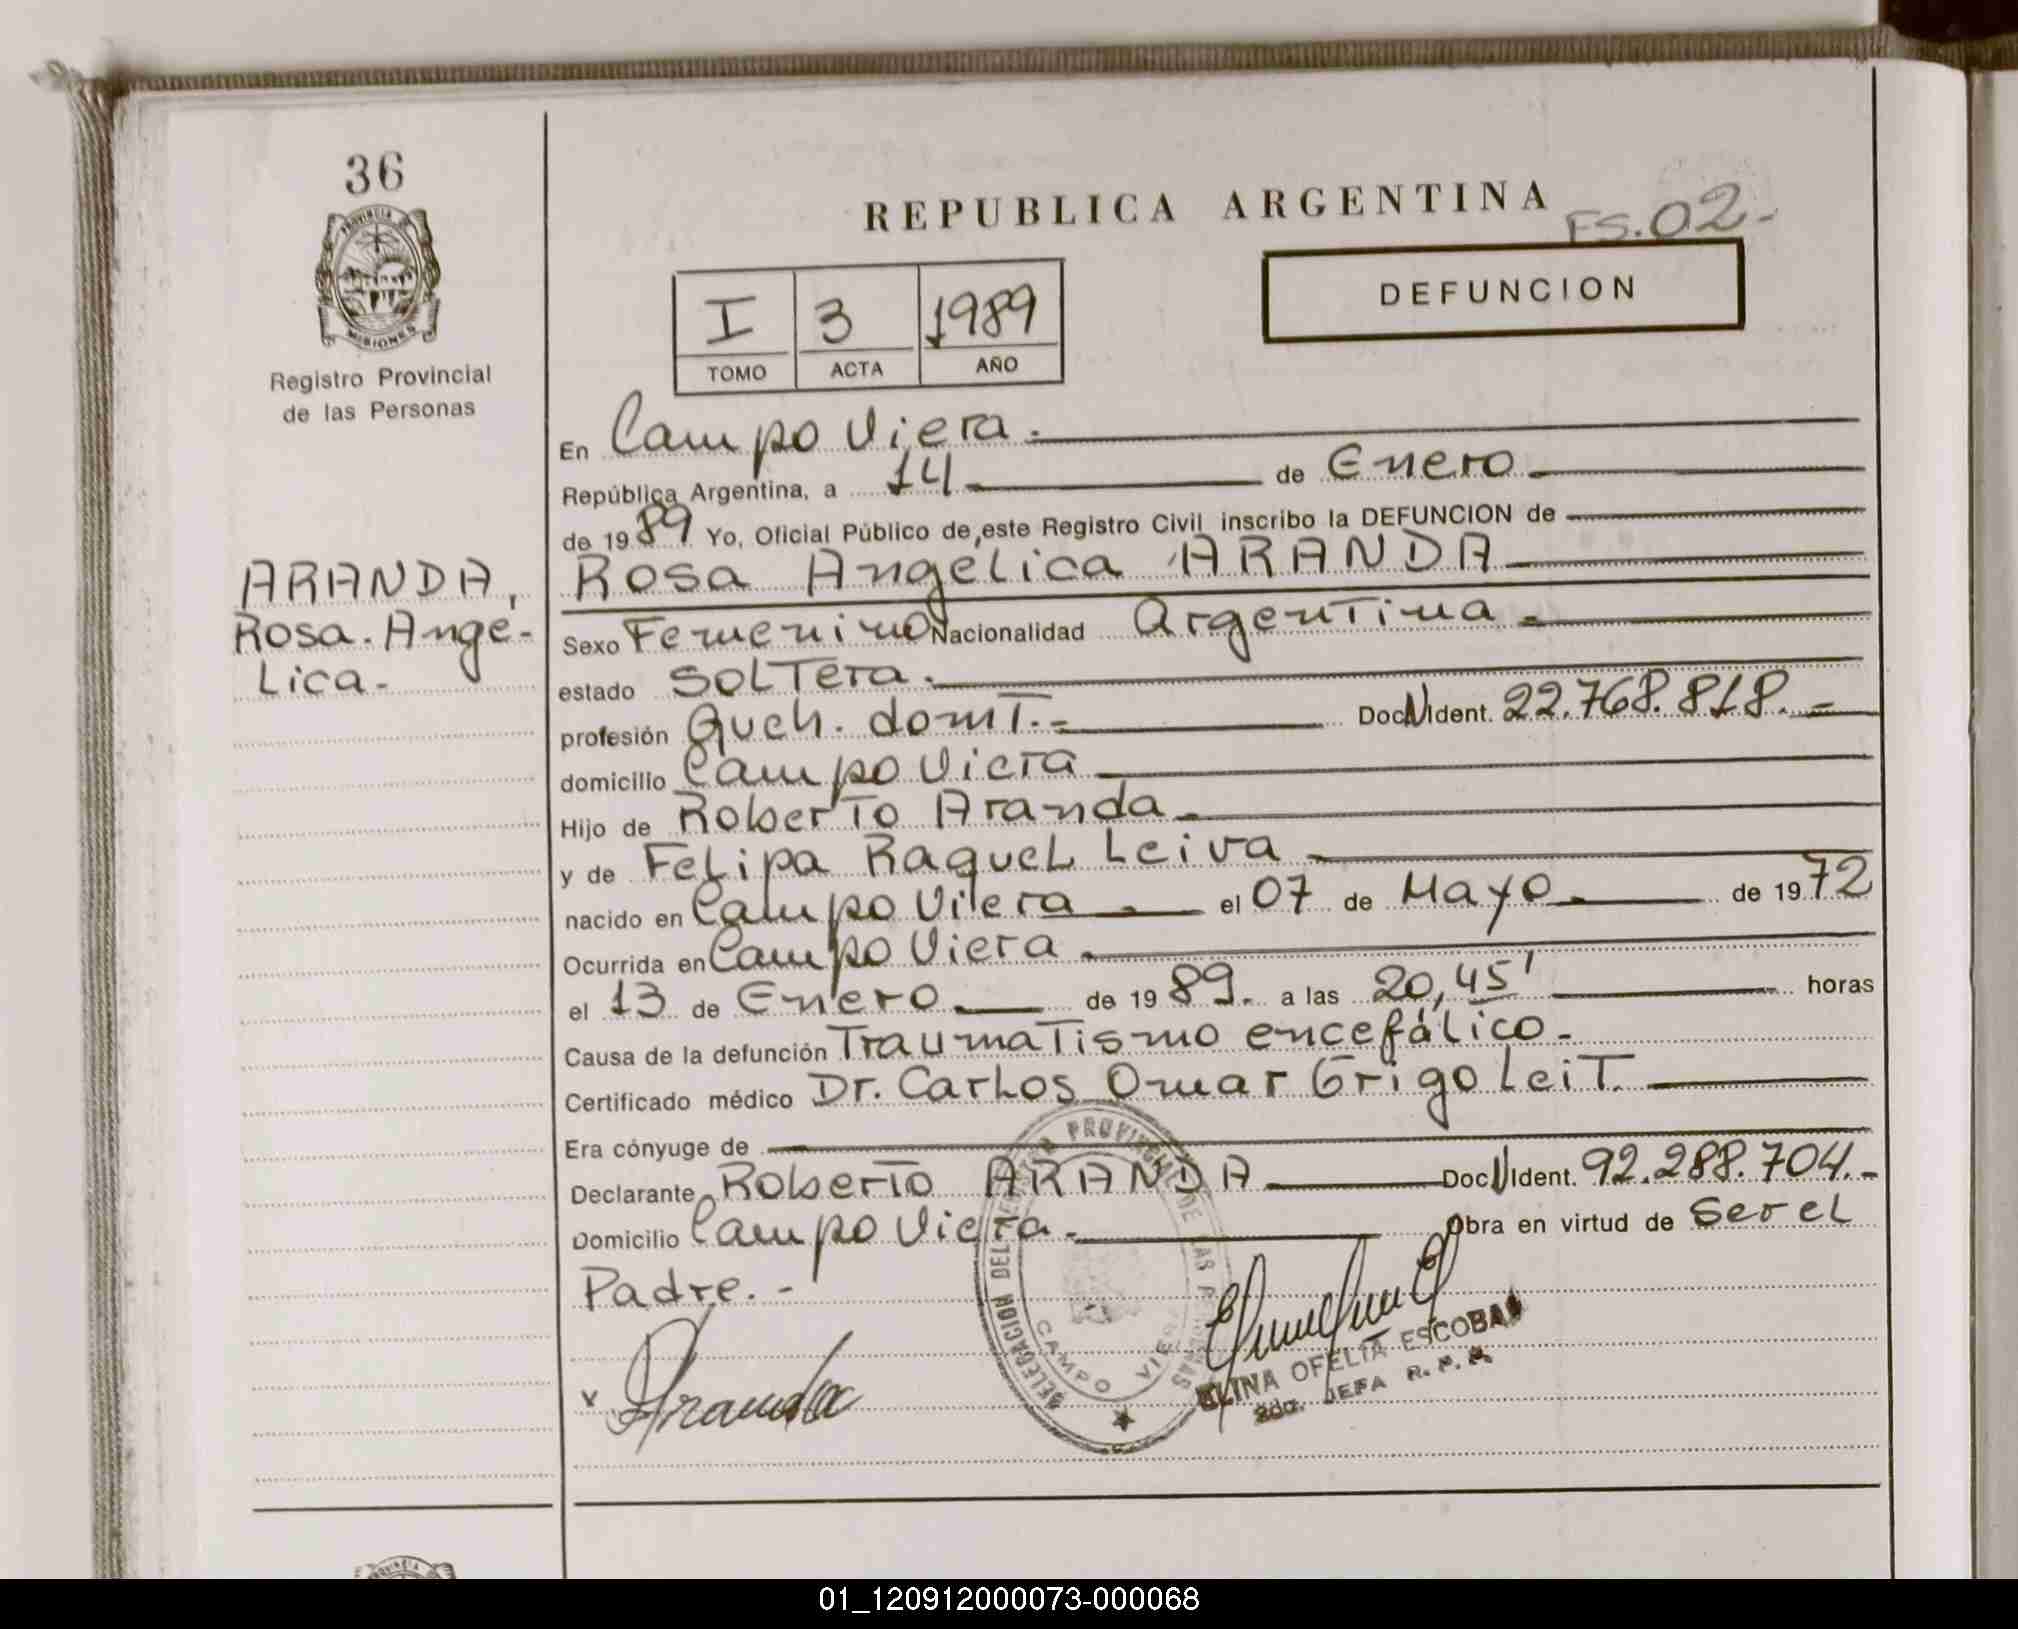 36
PROVINCIA
MISIONES
Registro Provincial
de las Personas
ARANDA,
Rosa. Angé-
lica.-
REPUBLICA ARGENTINA
FS.02.-
DEFUNCION
I 3 1989
TOMO ACTA AÑO
En Campo Viera.-
República Argentina, a 14 de Enero.
de 1989 Yo, Oficial Público de este Registro Civil inscribo la DEFUNCION de
Rosa Angélica ARANDA
Sexo Femenino Nacionalidad Argentina.-
estado solTera.
profesión Queh. domT.- Doc N Ident. 22.768.818.-
domicilio Campo Viera
Hijo de RoberTo Aranda.
y de Felipa Raquel Leiva.
nacido en Campo Viera.- el 07 de Mayo. de 1972
Ocurrida en Campo Viera.
el 13 de Enero. de 1989. a las 20,45' horas
Causa de la defunción TraumaTismo encefálico.-
Certificado médico Dr. Carlos Omar GrigoleiT.
Era cónyuge de
Declarante RoberTo ARANDA Doc N Ident. 92.288.704.-
Domicilio Campo Viera. Obra en virtud de ser el
Padre.-
DELEGACION DEL REGISTRO PROVINCIAL DE LAS PERSONAS
CAMPO VIERA
x Aranda
ELINA OFELIA ESCOBAR
2do. JEFA R. P. P.
PROVINCIA
01_120912000073-000068